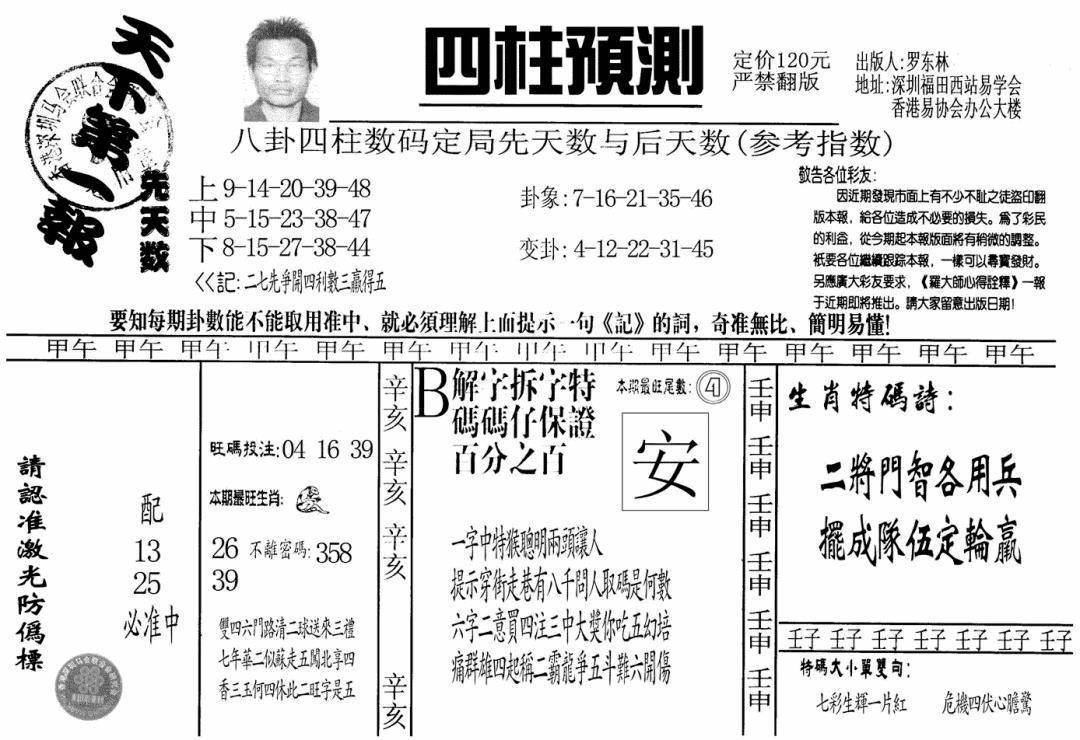 天下第一報
四柱預測
定价120元
严禁翻版
出版人:罗东林
地址:深圳福田西站易学会
香港易协会办公大楼
八卦四柱数码定局先天数与后天数(参考指数)
先天数
上9-14-20-39-48
中5-15-23-38-47
下8-15-27-38-44
<<記:二七先爭開四利數三贏得五
卦象:7-16-21-35-46
变卦:4-12-22-31-45
敬告各位彩友:
因近期發現市面上有不少不耻之徒盜印翻
版本報,給各位造成不必要的損失。爲了彩民
的利益,從今期起本報版面將有稍微的調整。
衹要各位繼續跟踪本報,一樣可以尋寶發財。
另應廣大彩友要求,《羅大師心得詮釋》一報
于近期即將推出。請大家留意出版日期!
要知每期卦數能不能取用准中、就必須理解上面提示一句《記》的詞,奇准無比、簡明易懂!
甲午 甲午 甲午 甲午 甲午 甲午 甲午 甲午 甲午 甲午 甲午 甲午 甲午 甲午 甲午
請認准激光防僞標
配
13
25
必准中
旺碼投注:04 16 39
本期最旺生肖:
26 不離密碼:358
39
雙四六門路清二球送來三禮
七年華二似蘇走五闖北享四
香三玉何四休此二旺字是五
辛亥 辛亥 辛亥 辛亥
B解字拆字特
碼碼仔保證
百分之百
本期最旺尾數:
安
一字中特猴聰明兩頭讓人
提示穿街走巷有八千問人取碼是何數
六字二意買四注三中大獎你吃五幻培
痛群雄四起稱二霸龍爭五斗難六開傷
壬申 壬申 壬申 壬申 壬申 壬申
生肖特碼詩:
二將門智各用兵
擺成隊伍定輪贏
壬子 壬子 壬子 壬子 壬子 壬子 壬子
特碼大小單雙句:
七彩生輝一片紅 危機四伏心膽驚